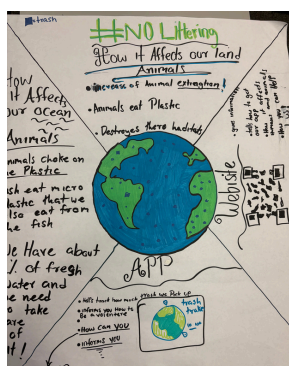 trash
#NO Littering
How it Affects our land
Animals
• increase of Animal extinction!
• Animals eat Plastic
• Destroyes there habitats
How
it Affects
our ocean
Animals
Animals choke on
the Plastic
fish eat micro
Plastic that we
also eat from
the fish
We Have about
% of fresh
water and
we need
to take
care of
it!
Webiste
• give information
• tells how to get
our app
• How you can Help
APP
• tells trash how much
• informs you How to
Be a volenteer
• How can you
• informs you
trash we Pick up
trash